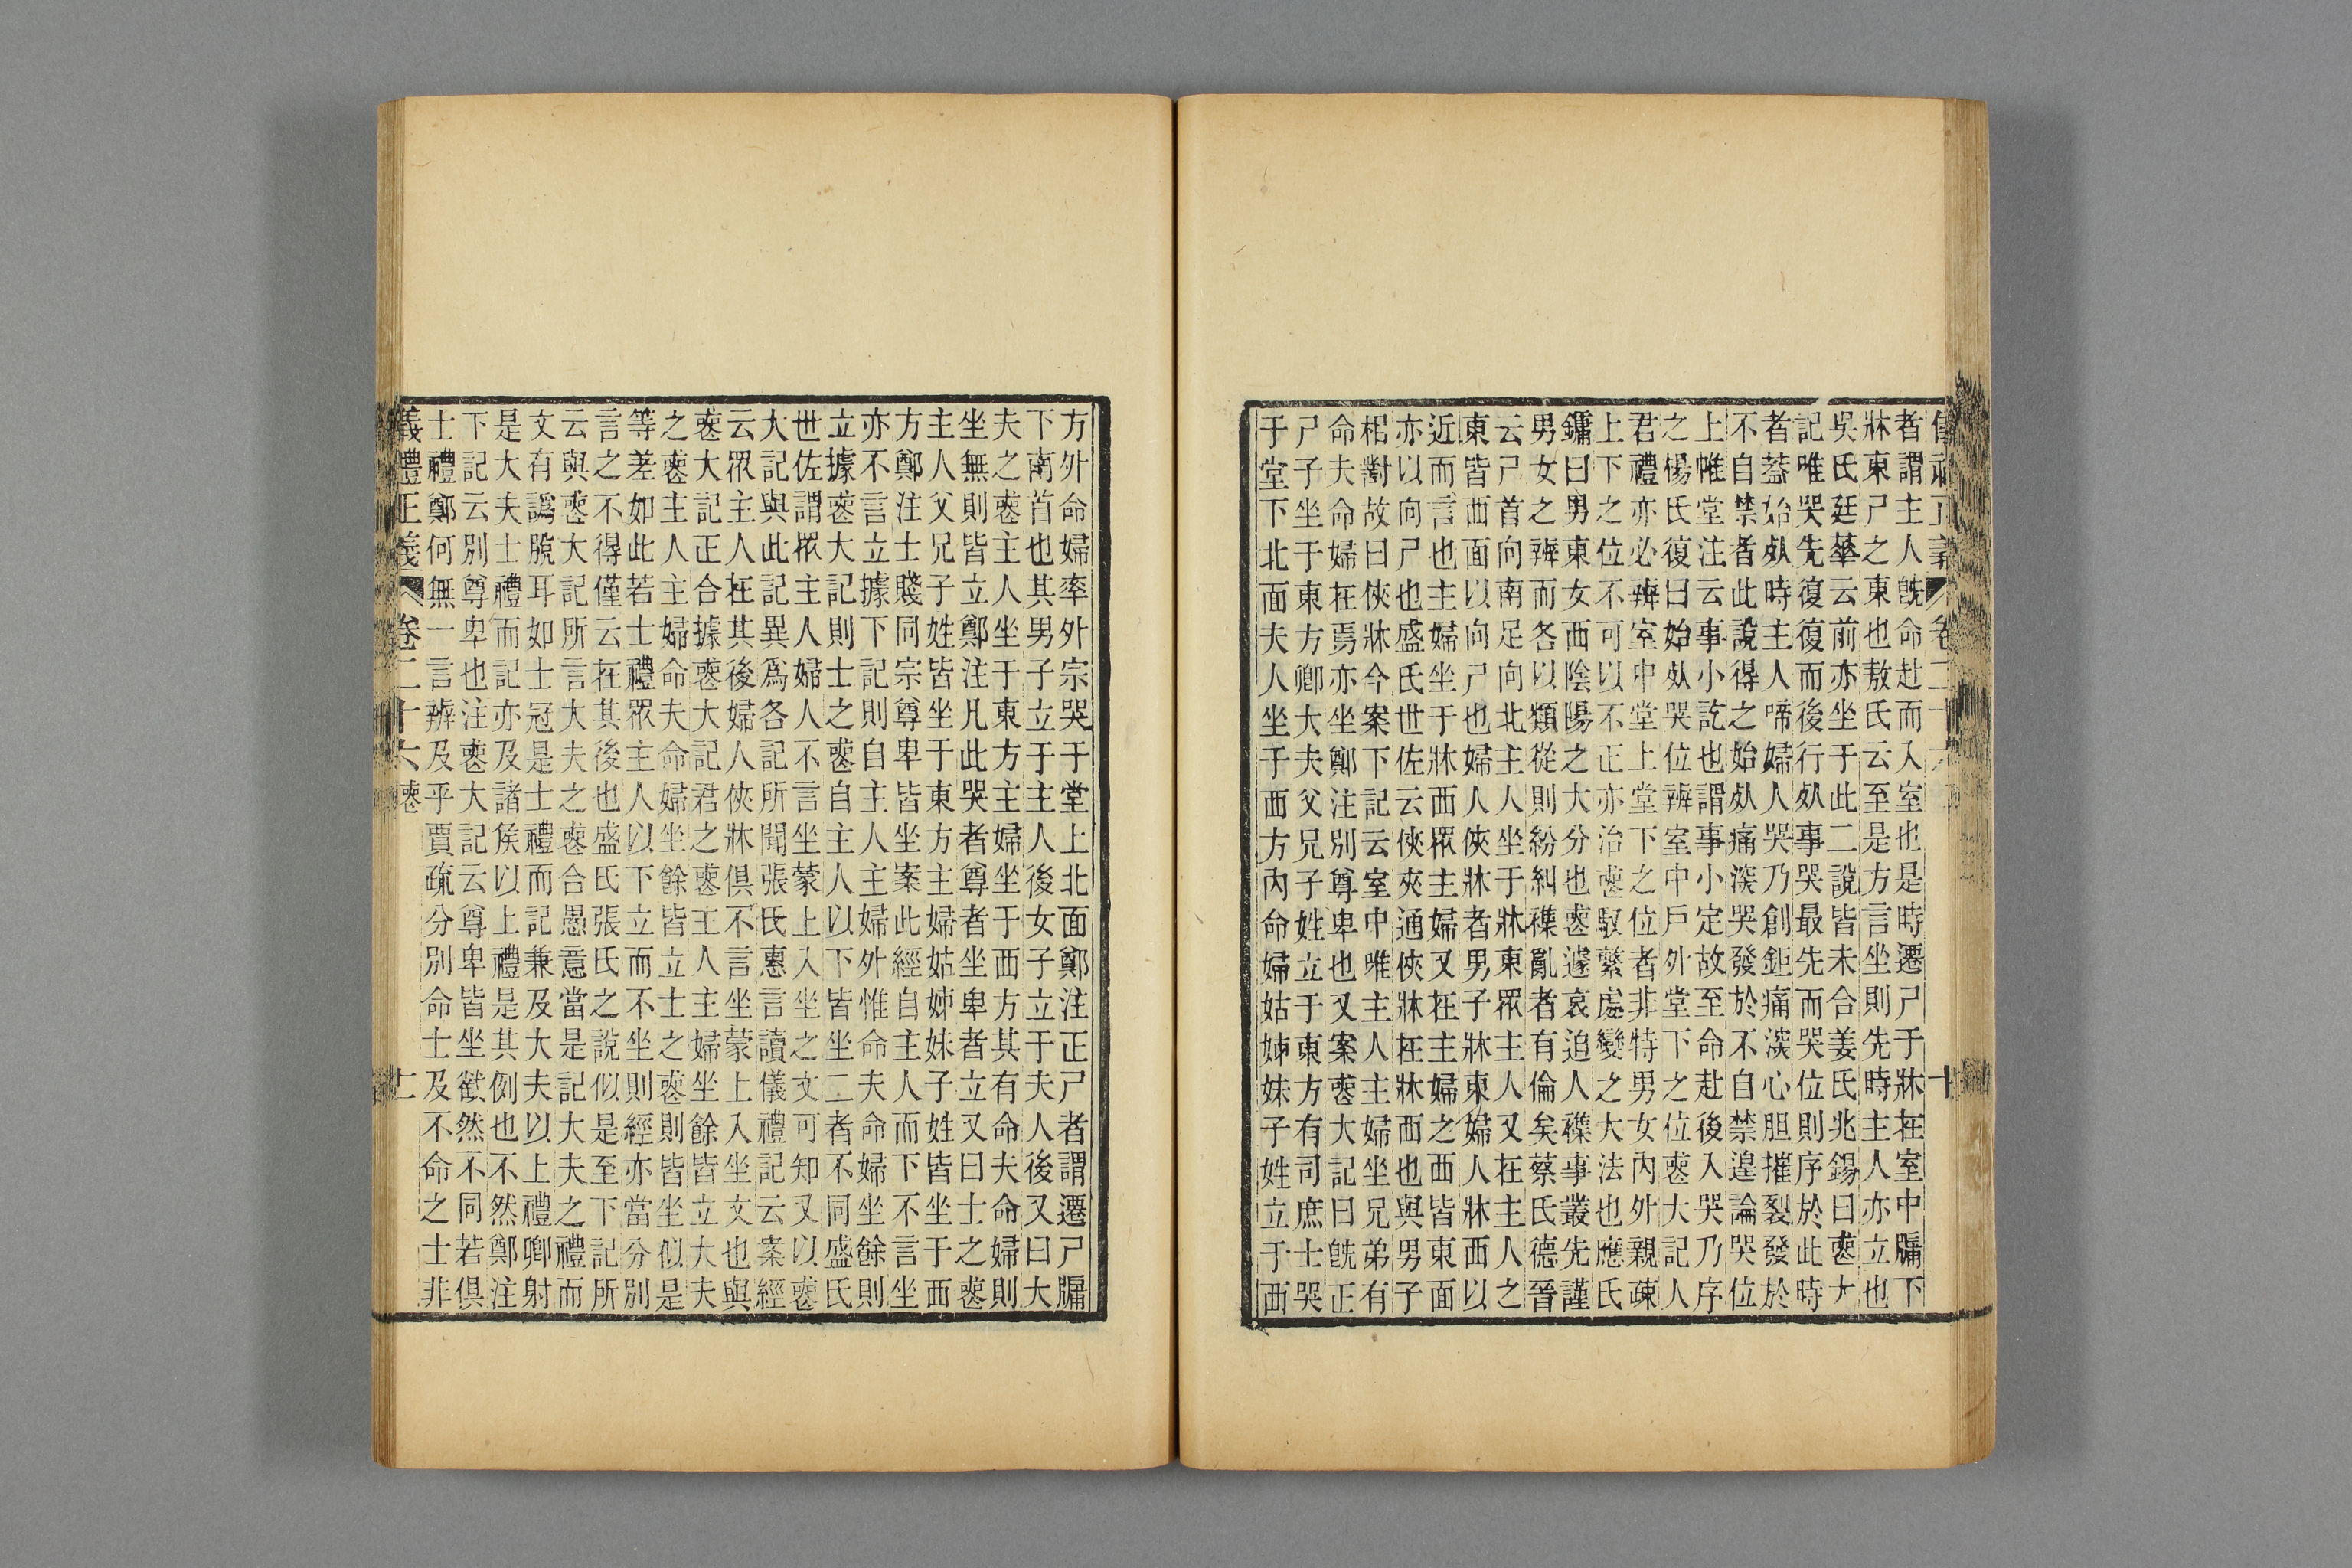 儀禮正義 卷二十六 十
者謂主人旣命赴而入室也是時遷尸于牀在室中牖下
牀東尸之東也敖氏云至是方言坐則先時主人亦立也
吳氏廷華云前亦坐于此二說皆未合姜氏兆錫曰喪大
記唯哭先復復而後行死事哭最先而哭位則序於此時
者葢始死時主人啼婦人哭乃創鉅痛深心胆摧裂發於
不自禁者此說得之始死痛深哭發於不自禁遑論哭位
上帷堂注云事小訖也謂事小定故至命赴後入哭乃序
之楊氏復曰始死哭位辨室中戶外堂下之位喪大記人
君禮亦必辨室中堂上堂下之位者非特男女內外親疎
上下之位不可以不正亦治喪馭繁處變之大法也應氏
鏞曰男東女西陰陽之大分也喪遽哀迫人襍事叢先謹
男女之辨而各以類從則紛糾襍亂者有倫矣蔡氏德晉
云尸首向南足向北主人坐于牀東眾主人又在主人之
東皆西面以向尸也主婦人俠牀者男子牀東婦人牀西以
近而言也主婦坐于牀西眾主婦又在主婦之西皆東面
亦以向尸也盛氏世佐云俠夾通俠牀在牀西也與男子
相對故曰俠牀今案下記云室中唯主人主婦坐兄弟有
命夫命婦在焉亦坐鄭注別尊卑也又案喪大記曰旣正
尸子坐于東方卿大夫父兄子姓立于東方有司庶士哭
于堂下北面夫人坐于西方內命婦姑姊妹子姓立于西
方外命婦率外宗哭于堂上北面鄭注正尸者謂遷尸牖
下南首也其男子立于主人後女子立于夫人後又曰大
夫之喪主人坐于東方主婦坐于西方其有命夫命婦則
坐無則皆立鄭注凡此哭者尊者坐卑者立又曰士之喪
主人父兄子姓皆坐于東方主婦姑姊妹子姓皆坐于西
方鄭注士賤同宗尊卑皆坐案此經自主人而下不言坐
亦不言立據下記則自主人主婦外惟命夫命婦坐餘則
立據喪大記則士之喪自主人以下皆坐二者不同盛氏
世佐謂眾主人婦人不言坐蒙上入坐之文可知又以喪
大記與此記異爲各記所聞張氏惠言讀儀禮記云案經
云眾主人在其後婦人俠牀俱不言坐蒙上入坐文也與
喪大記正合據喪大記君之喪主人主婦坐餘皆立大夫
之喪主人主婦命夫命婦坐餘皆立士之喪則皆坐似是
等差如此若士禮眾主人以下立而不坐則經亦當分別
言之不得僅云在其後也盛氏張氏之說似是至下記所
云與喪大記所言大夫之喪合愚意當是記大夫之禮而
文有譌脫耳如士冠是士禮而記兼及大夫以上禮鄉射
是大夫士禮而記亦及諸侯以上禮是其例也不然鄭注
下記云別尊卑也注喪大記云尊卑皆坐然不同若俱
士禮鄭何無一言辨及乎賈疏分別命士及不命之士非
儀禮正義 卷二十六 喪